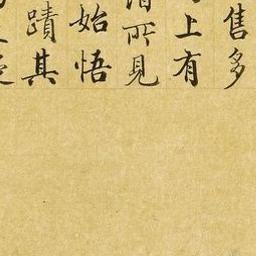 售多
上有
所見
始悟
蹟其